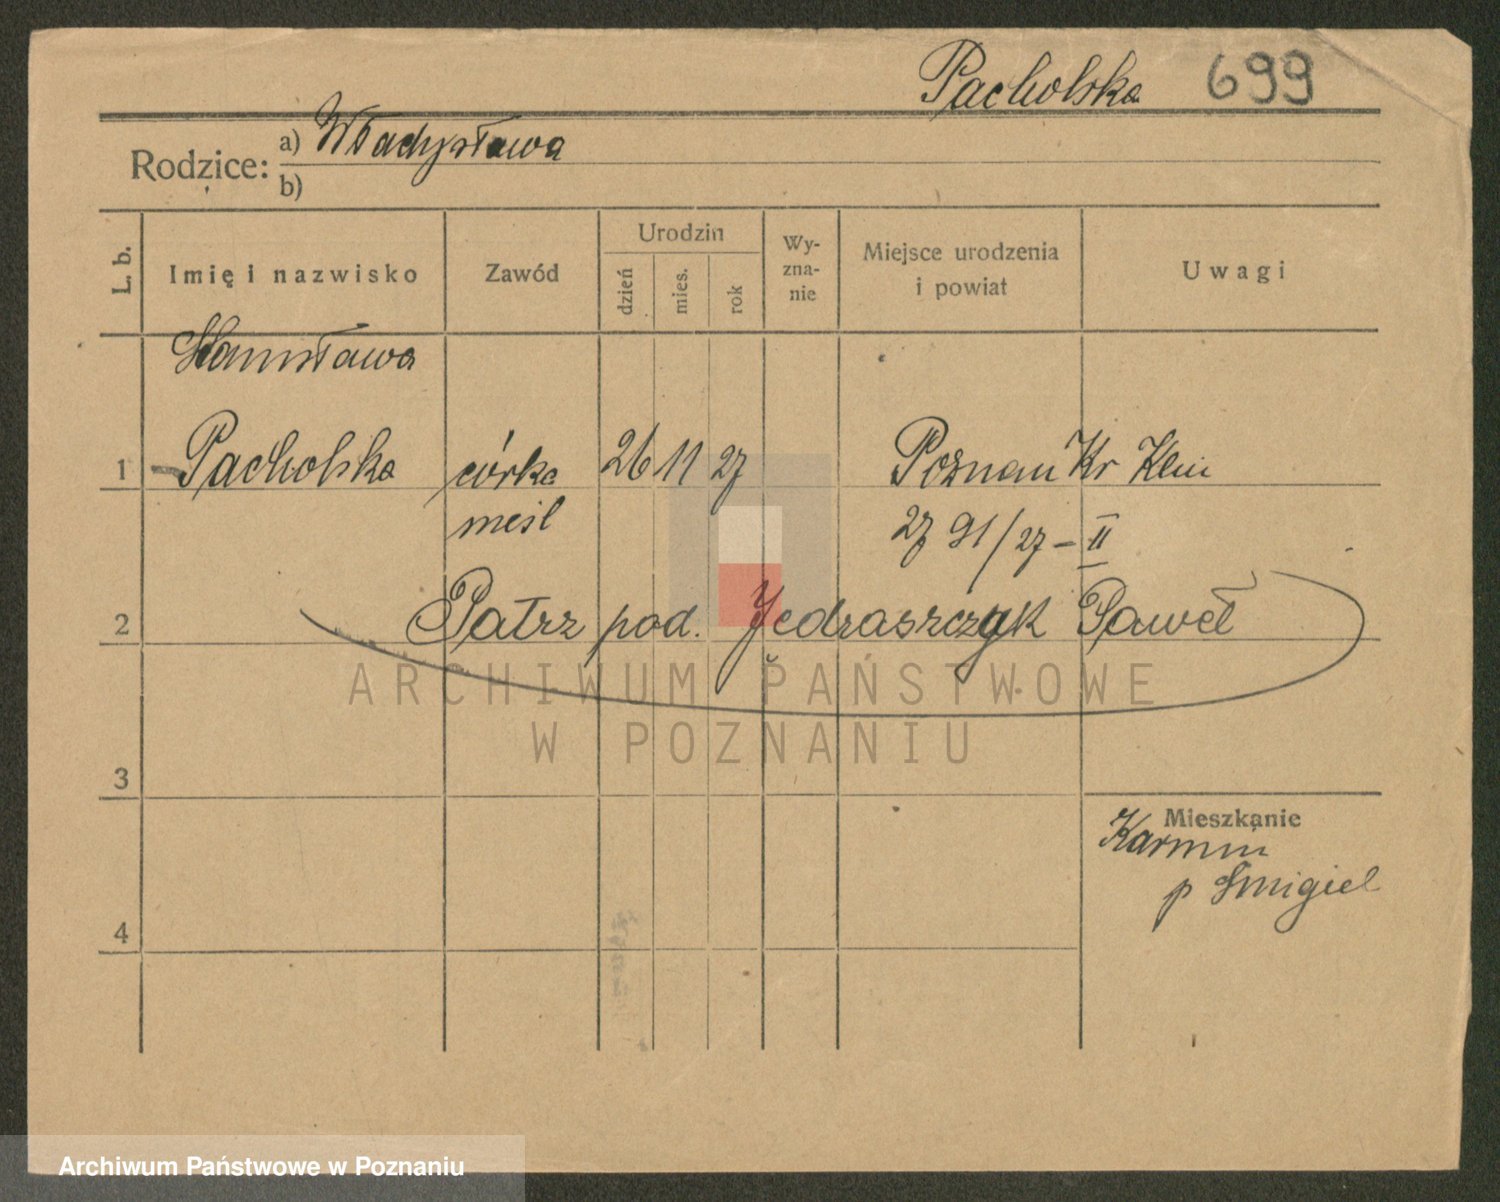 Pacholska 699
Rodzice: a) Władysława
b)
L. b. Imię i nazwisko Zawód Urodzin dzień mies. rok Wy-zna-nie Miejsce urodzenia i powiat Uwagi
Stanisława
1 Pacholska córka 26 11 27 Poznan Kr Klin
nieśl 27 91/27 – II
2 Patrz pod. Jędraszczyk Paweł
3
Mieszkanie
Karmin
p Smigiel
4
ARCHIWUM PAŃSTWOWE
W POZNANIU
Archiwum Państwowe w Poznaniu